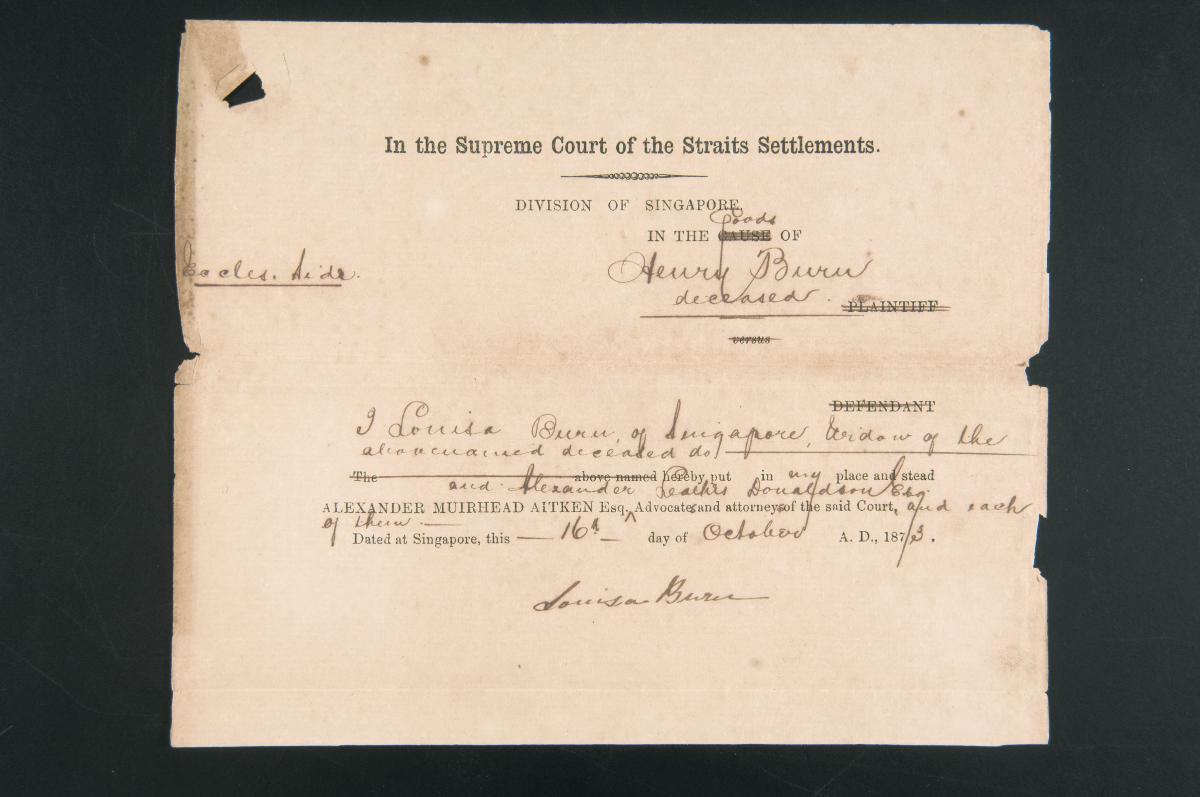 In the Supreme Court of the Straits Settlements.
DIVISION OF SINGAPORE,
Goods
IN THE CAUSE OF
Eccles. Side.
Henry Burn
deceased.
PLAINTIFF
versus
DEFENDANT
I Louisa Burn, of Singapore, Widow of the
abovenamed deceased do
The above named hereby put in my place and stead
and Alexander Donaldson Esq.
ALEXANDER MUIRHEAD AITKEN Esq. Advocates and attorneys of the said Court, and each
of them.
Dated at Singapore, this 16th day of October A. D., 1873.
Louisa Burn